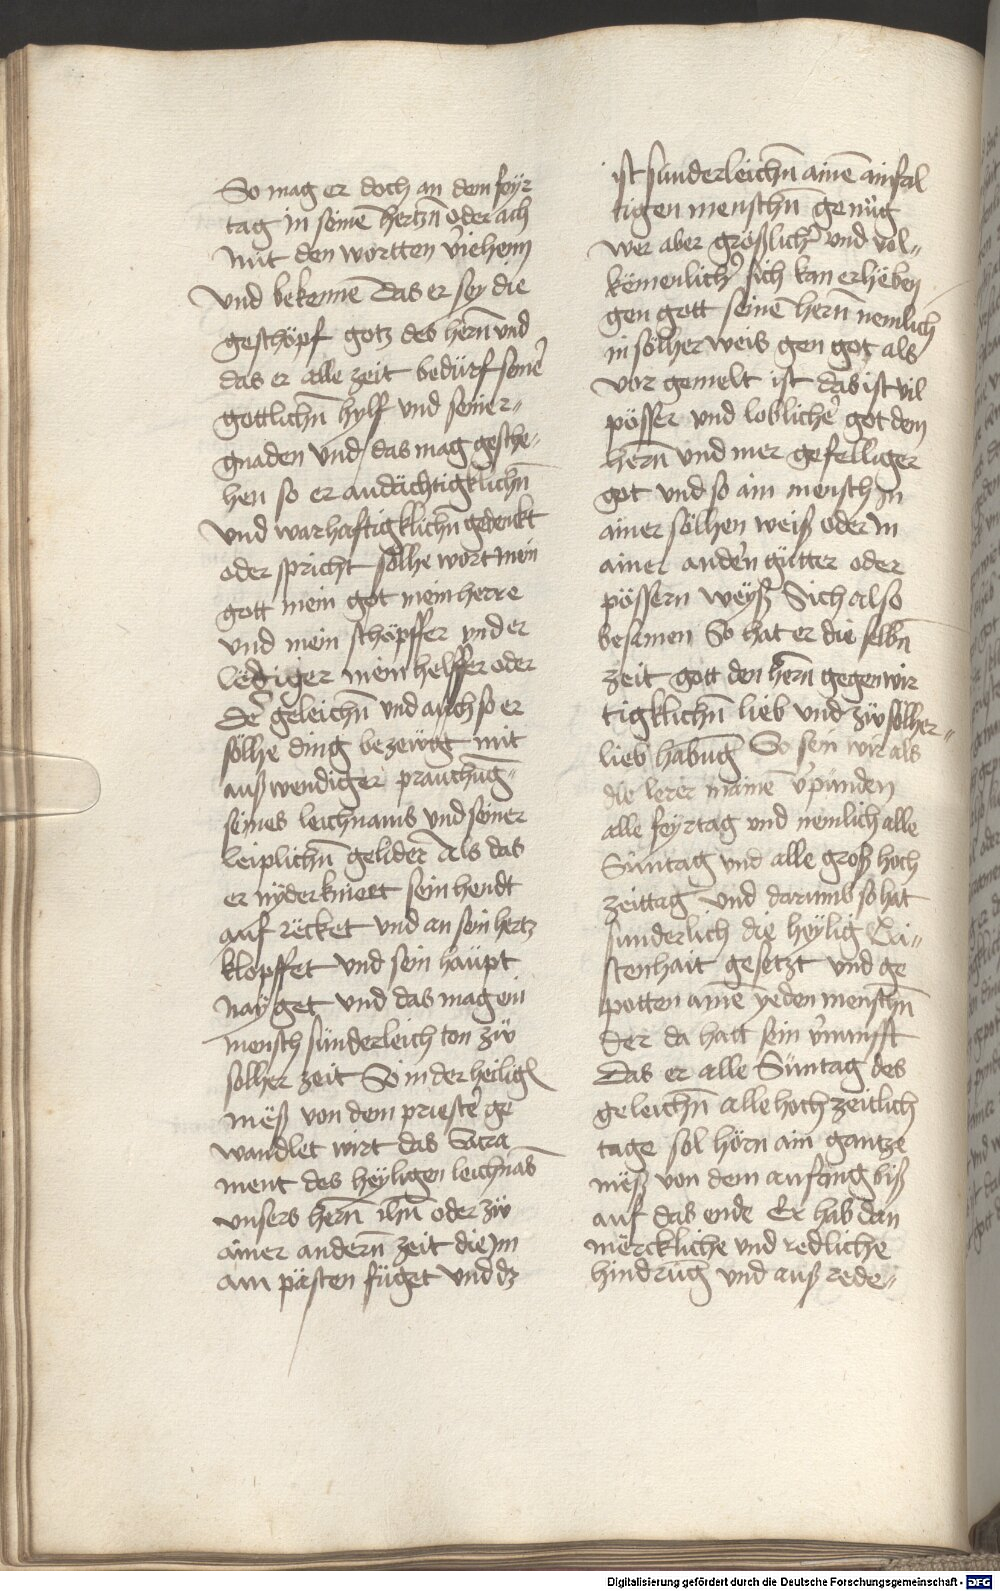 So mag er doch an dem feÿr
tag in seinē hertzn̄ oder ach
mit den wortten v̓iehenn
vnd bekennē Das er seÿ die
geschöpf gotz des hern̄ vnd
das er alle zeit bedürf sein̓
gottlichn̄ hÿlf vnd seiner
gnaden vnd das mag gesche-
hen so er andächtigklichn̄
vnd warhaftigklichn̄ gedenckt
oder spricht sölhe wort mein
gott mein got mein herre
vnd mein schöpffer vnd er
lediger mein helffer oder
de̓ geleichn̄ vnd auch so er
sölhe ding bezewgt mit
außwendiger prauchūg
seines leichnams vnd seiner
leiplichn̄ gelider Als das
er nÿderkniet sein hendt
auf recket vnd an sein hertz
klopffet vnd sein haupt
naÿget vnd das mag ein
mensch sünderleich ton zü
solher zeit So in der heilign̄
mëß von dem prieste̓ ge
wandlet wirt das Sacra
ment des heÿligen leichnās
vnsers hern̄ ihū oder zü
ainer andern̄ zeit die Im
am pästen füget vnd dz
ist sunderleichn̄ ainē ainfal
tigen menschn̄ genüg
wer aber größlich̓ vnd vol-
kömenlich̓ sich kan erheben
gen gott seinē hern̄ nemlich
in sölher weis gen got als
vor gemelt ist das ist vil
pösser vnd lobliche̓ got dem
hern̄ vnd mer gefelliger
got vnd so ain mensch In
ainer sölhen weiß oder In
ainer anden̓ gütter oder
pössern weÿß Sich also
besamen So hat er die selbn̄
zeit gott den hern̄ gegenwir
tigklichn̄ lieb vnd zü sölher
lieb habūg So sein wir als
die lerer mainē v̓punden
alle feÿrtag vnd nemlich alle
Süntag vnd alle groß hoch
zeittag vnd darumb so hat
sunderlich die heÿlig Cri-
stenhait gesetzt vnd ge
potten ainē ÿeden menschn̄
Der da hatt sein v̓nunfft
Das er alle Süntag des
geleichn̄ alle hochzeitlich
tage sol hörn ain gantze
mëß von dem anfang biß
auf das ende Er hab dan
mërckliche vnd redliche
hindrūg vnd auß rede
Digitalisierung gefördert durch die Deutsche Forschungsgemeinschaft - DFG